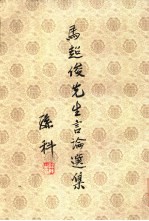 馬超俊先生言論選集
孫科